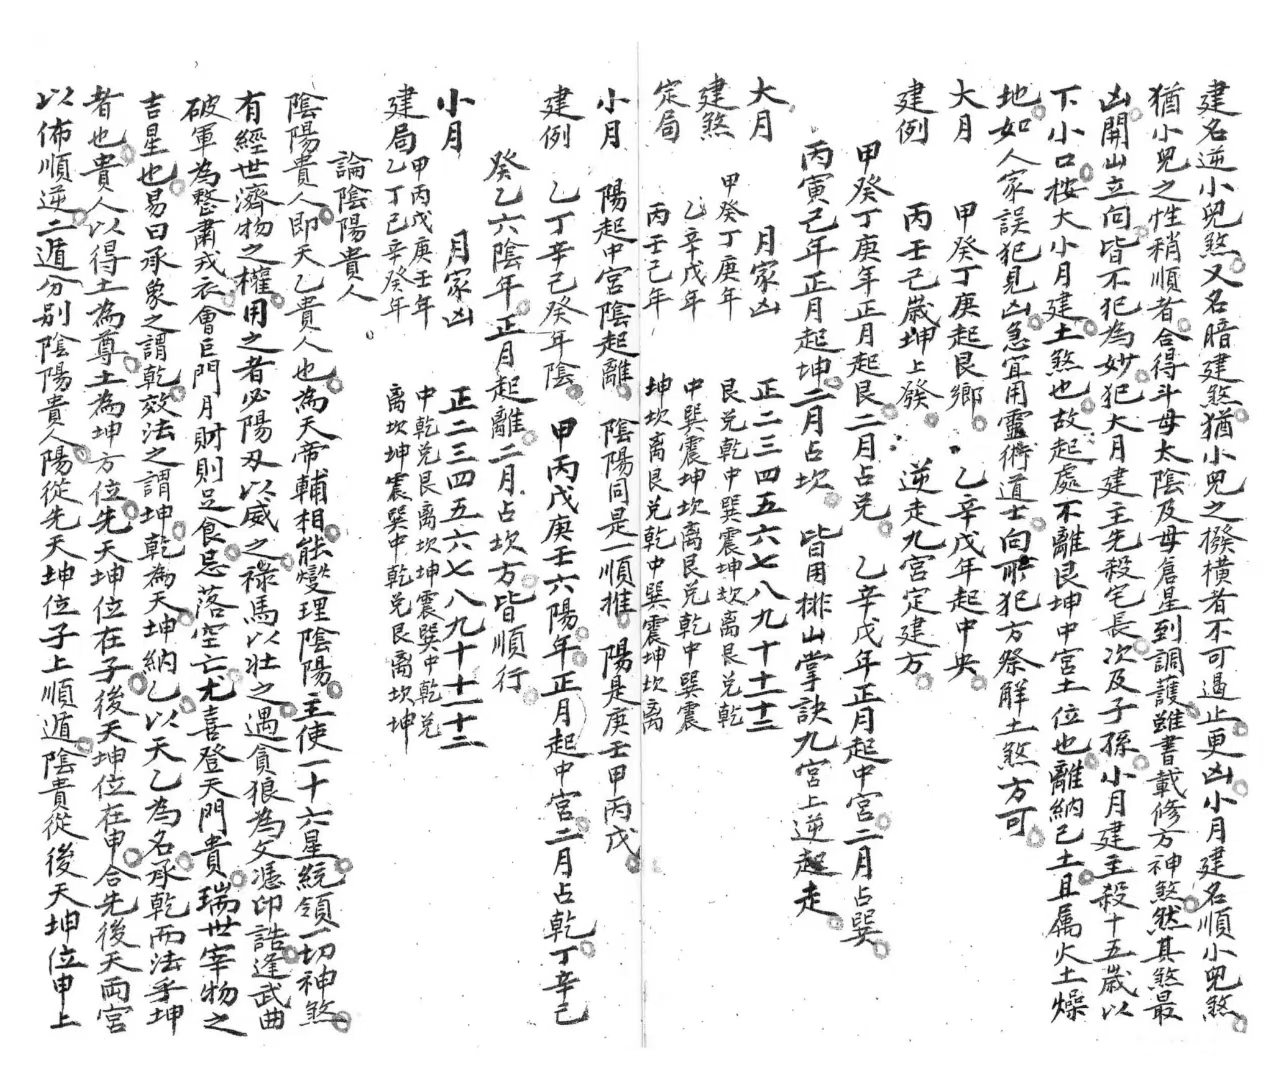 建名逆小兒煞又名暗建煞猶小兒之撥橫者不可遏止更凶小月建名順小兒煞
猶小兒之性稍順者合得斗母太陰及母倉星到調護雖書載修方神煞然其煞最
凶開山立向皆不犯為妙犯大月建主先殺宅長次及子孫小月建主殺十五歲以
下小口按大小月建土煞也故起處不離艮坤中宮土位也離納己土且属火土燥
地如人家誤犯見凶急宜用靈術道士向所犯方祭解土煞方可
大月　甲癸丁庚起艮鄉　乙辛戊年起中央
建例　丙壬己歲坤上發　逆走九宮定建方
甲癸丁庚年正月起艮二月占兑　乙辛戊年正月起中宮二月占巽
丙寅己年正月起坤二月占坎　皆用排山掌訣九宮上逆起走
大月　月家凶　正二三四五六七八九十十一十二
建煞　甲癸丁庚年　艮兑乾中巽震坤坎离艮兑乾
定局　乙辛戊年　中巽震坤坎离艮兑乾中巽震
丙壬己年　坤坎离艮兑乾中巽震坤坎离
小月　陽起中宮陰起離　陰陽同是一順推　陽是庚壬甲丙戊
建例　乙丁辛己癸年陰　甲丙戊庚壬六陽年正月起中宮二月占乾丁辛己
癸乙六陰年正月起離二月占坎方皆順行
小月　月家凶　正二三四五六七八九十十一十二
建局　甲丙戊庚壬年　中乾兑艮离坎坤震巽中乾兑
乙丁己辛癸年　离坎坤震巽中乾兑艮离坎坤
論陰陽貴人
陰陽貴人即天乙貴人也為天帝輔相能燮理陰陽主使一十六星統領一切神煞
有經世濟物之權用之者必陽刃以威之祿馬以壯之遇貪狼為文憑印誥逢武曲
破軍為整肅戎衣會巨門月財則足食忌落空亡尤喜登天門貴瑞世宰物之
吉星也易曰承象之謂乾效法之謂坤乾為天坤納乙以天乙為名承乾而法乎坤
者也貴人以得土為尊土為坤方位先天坤位在子後天坤位在申合先後天両宮
以佈順逆二遁分别陰陽貴人陽從先天坤位子上順遁陰貴從後天坤位申上